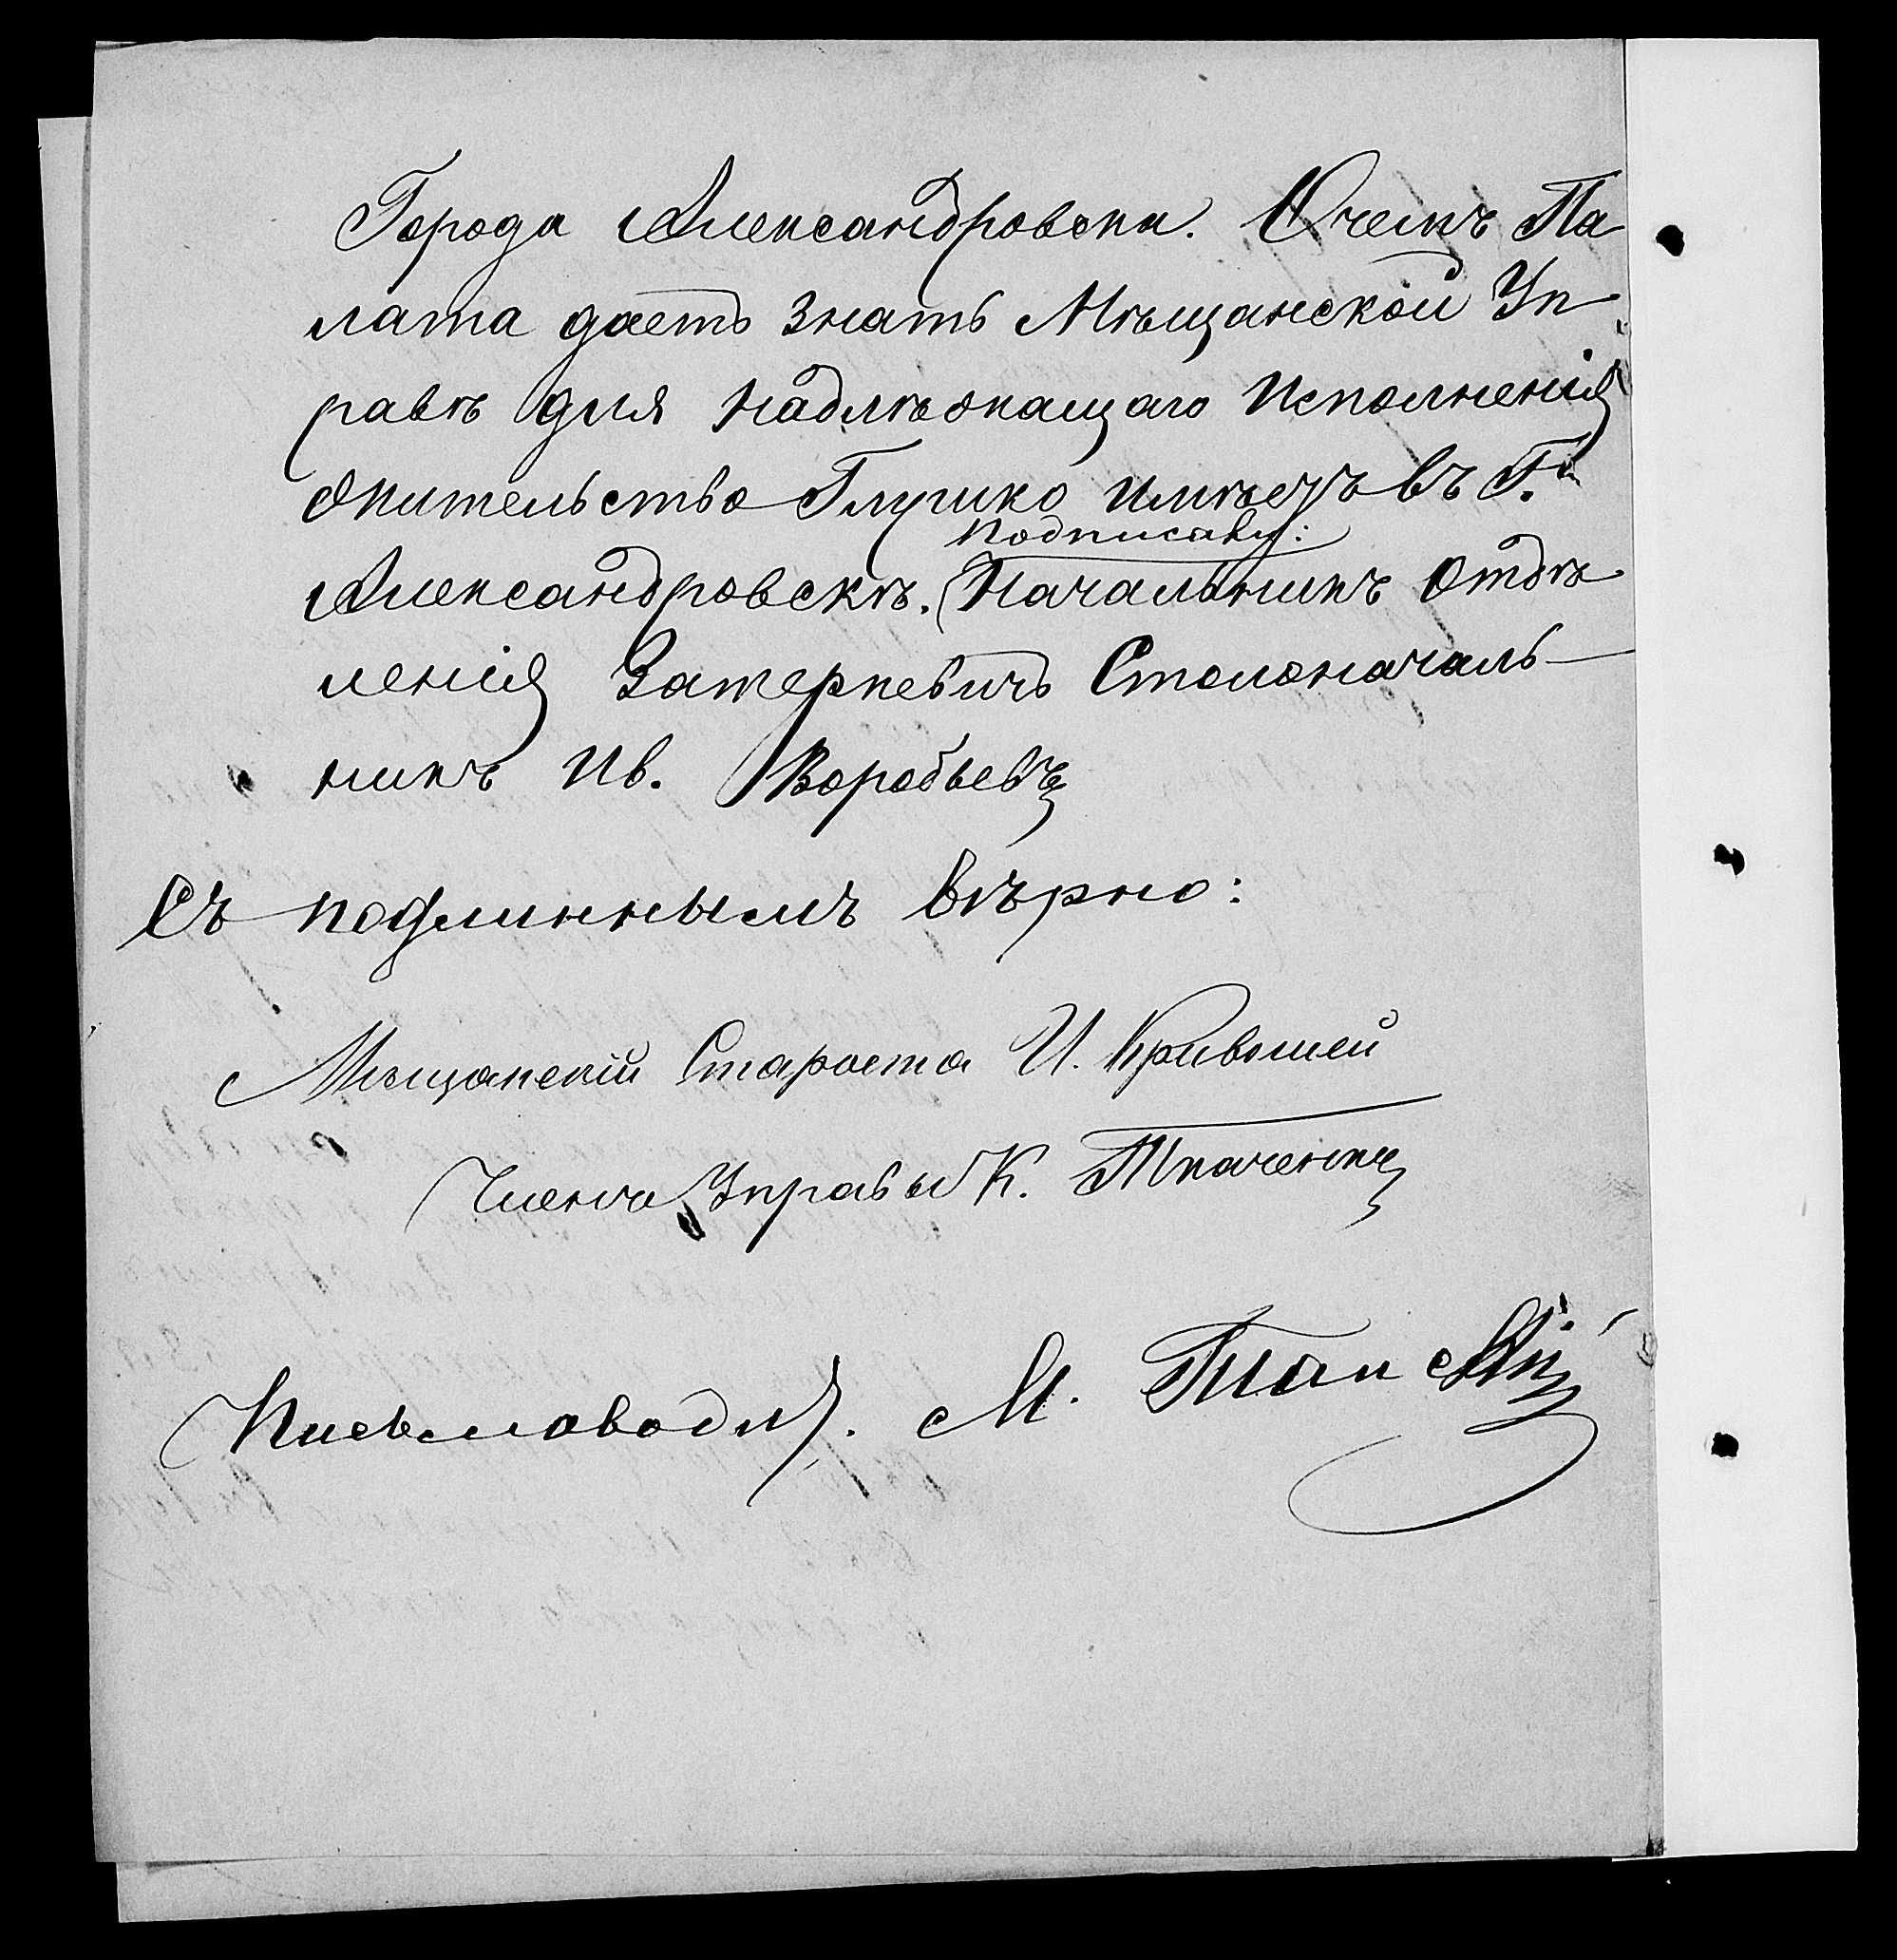 Города Александровска. О чемъ Па
лата даетъ знать Мѣщанской Уп
равѣ для надлѣжащаго исполненія
жительство Глушко имѣетъ въ Г.
Подписали:
Александровскѣ. Начальникъ Отдѣ
ленія Затеркевичъ Столоначаль
никъ Ив. Воробьевъ
Съ подлиннымъ вѣрно:
Мѣщанскій Староста И. Кривошей
Члена Управы К. Ткаченко
Письмоводит. М.